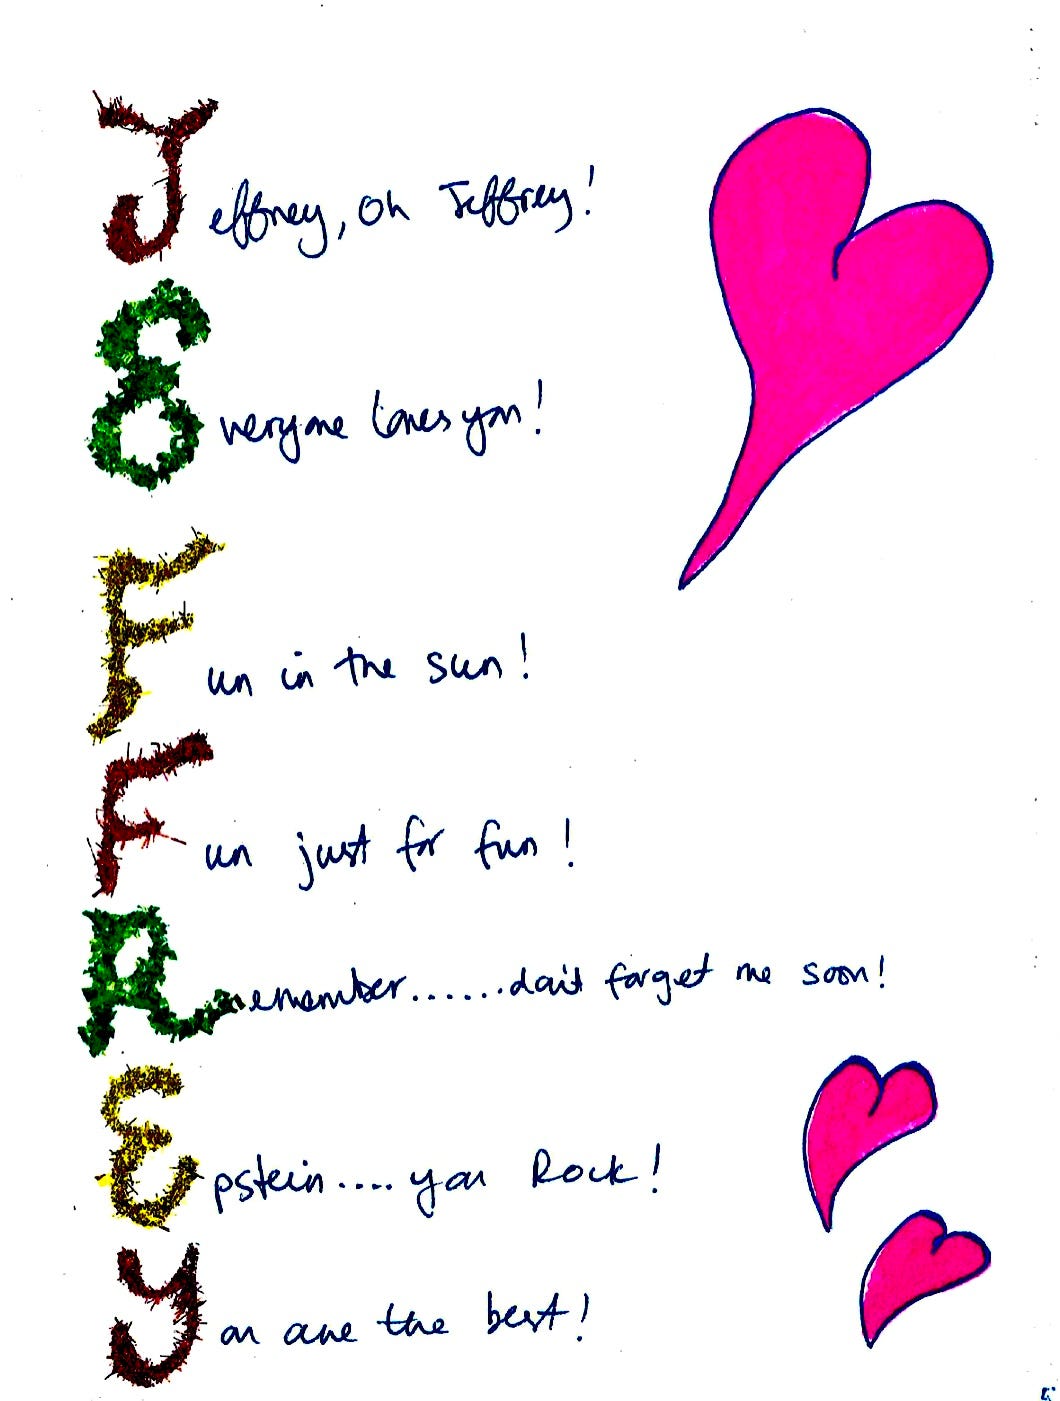 Jeffrey, oh Jeffrey!
Everyone loves you!
Fun in the sun!
Fun just for fun!
Remember......don't forget me soon!
Epstein....you Rock!
You are the best!